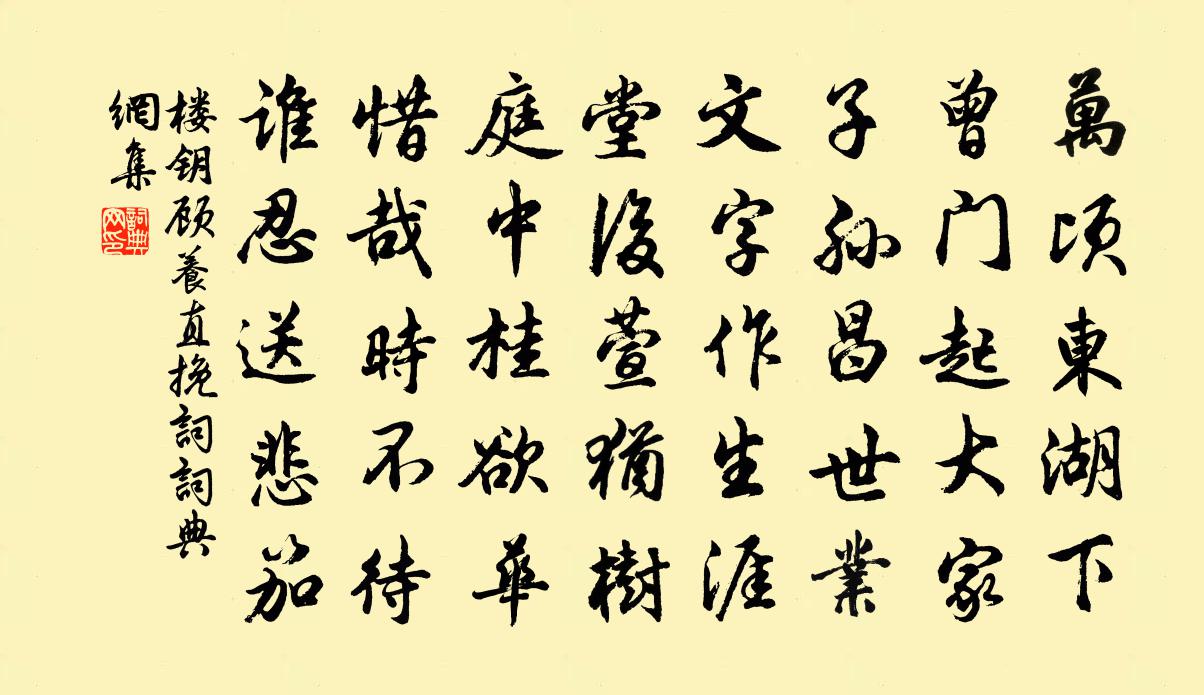 萬頃東湖下
曾门起大家
子孙昌世業
文字作生涯
堂後萱猶樹
庭中桂欲華
惜哉時不待
谁忍送悲笳
楼钥顾養直挽詞詞典
網集
詞典
网印